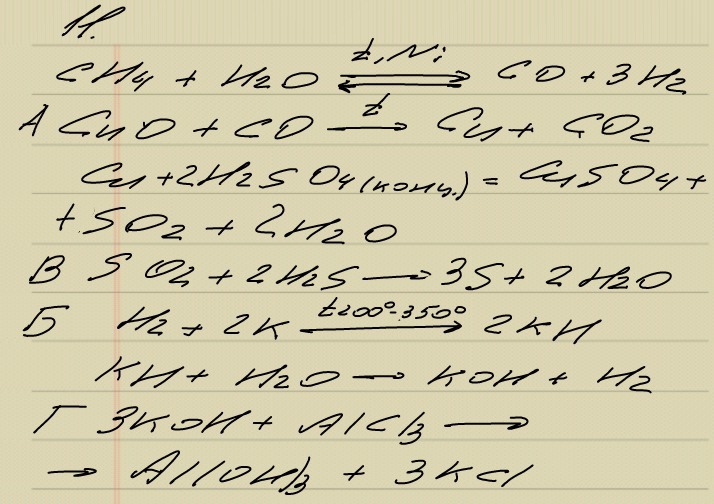 И.
CH4 + H2O ⇌ t, Ni CO + 3H2
А CuO + CO t→ Cu + CO2
Cu + 2H2SO4(конц.) = CuSO4 +
+ SO2 + 2H2O
В SO2 + 2H2S → 3S + 2H2O
Б H2 + 2K t200°-350°→ 2KH
KH + H2O → KOH + H2
Г 3KOH + AlCl3 →
→ Al(OH)3 + 3KCl